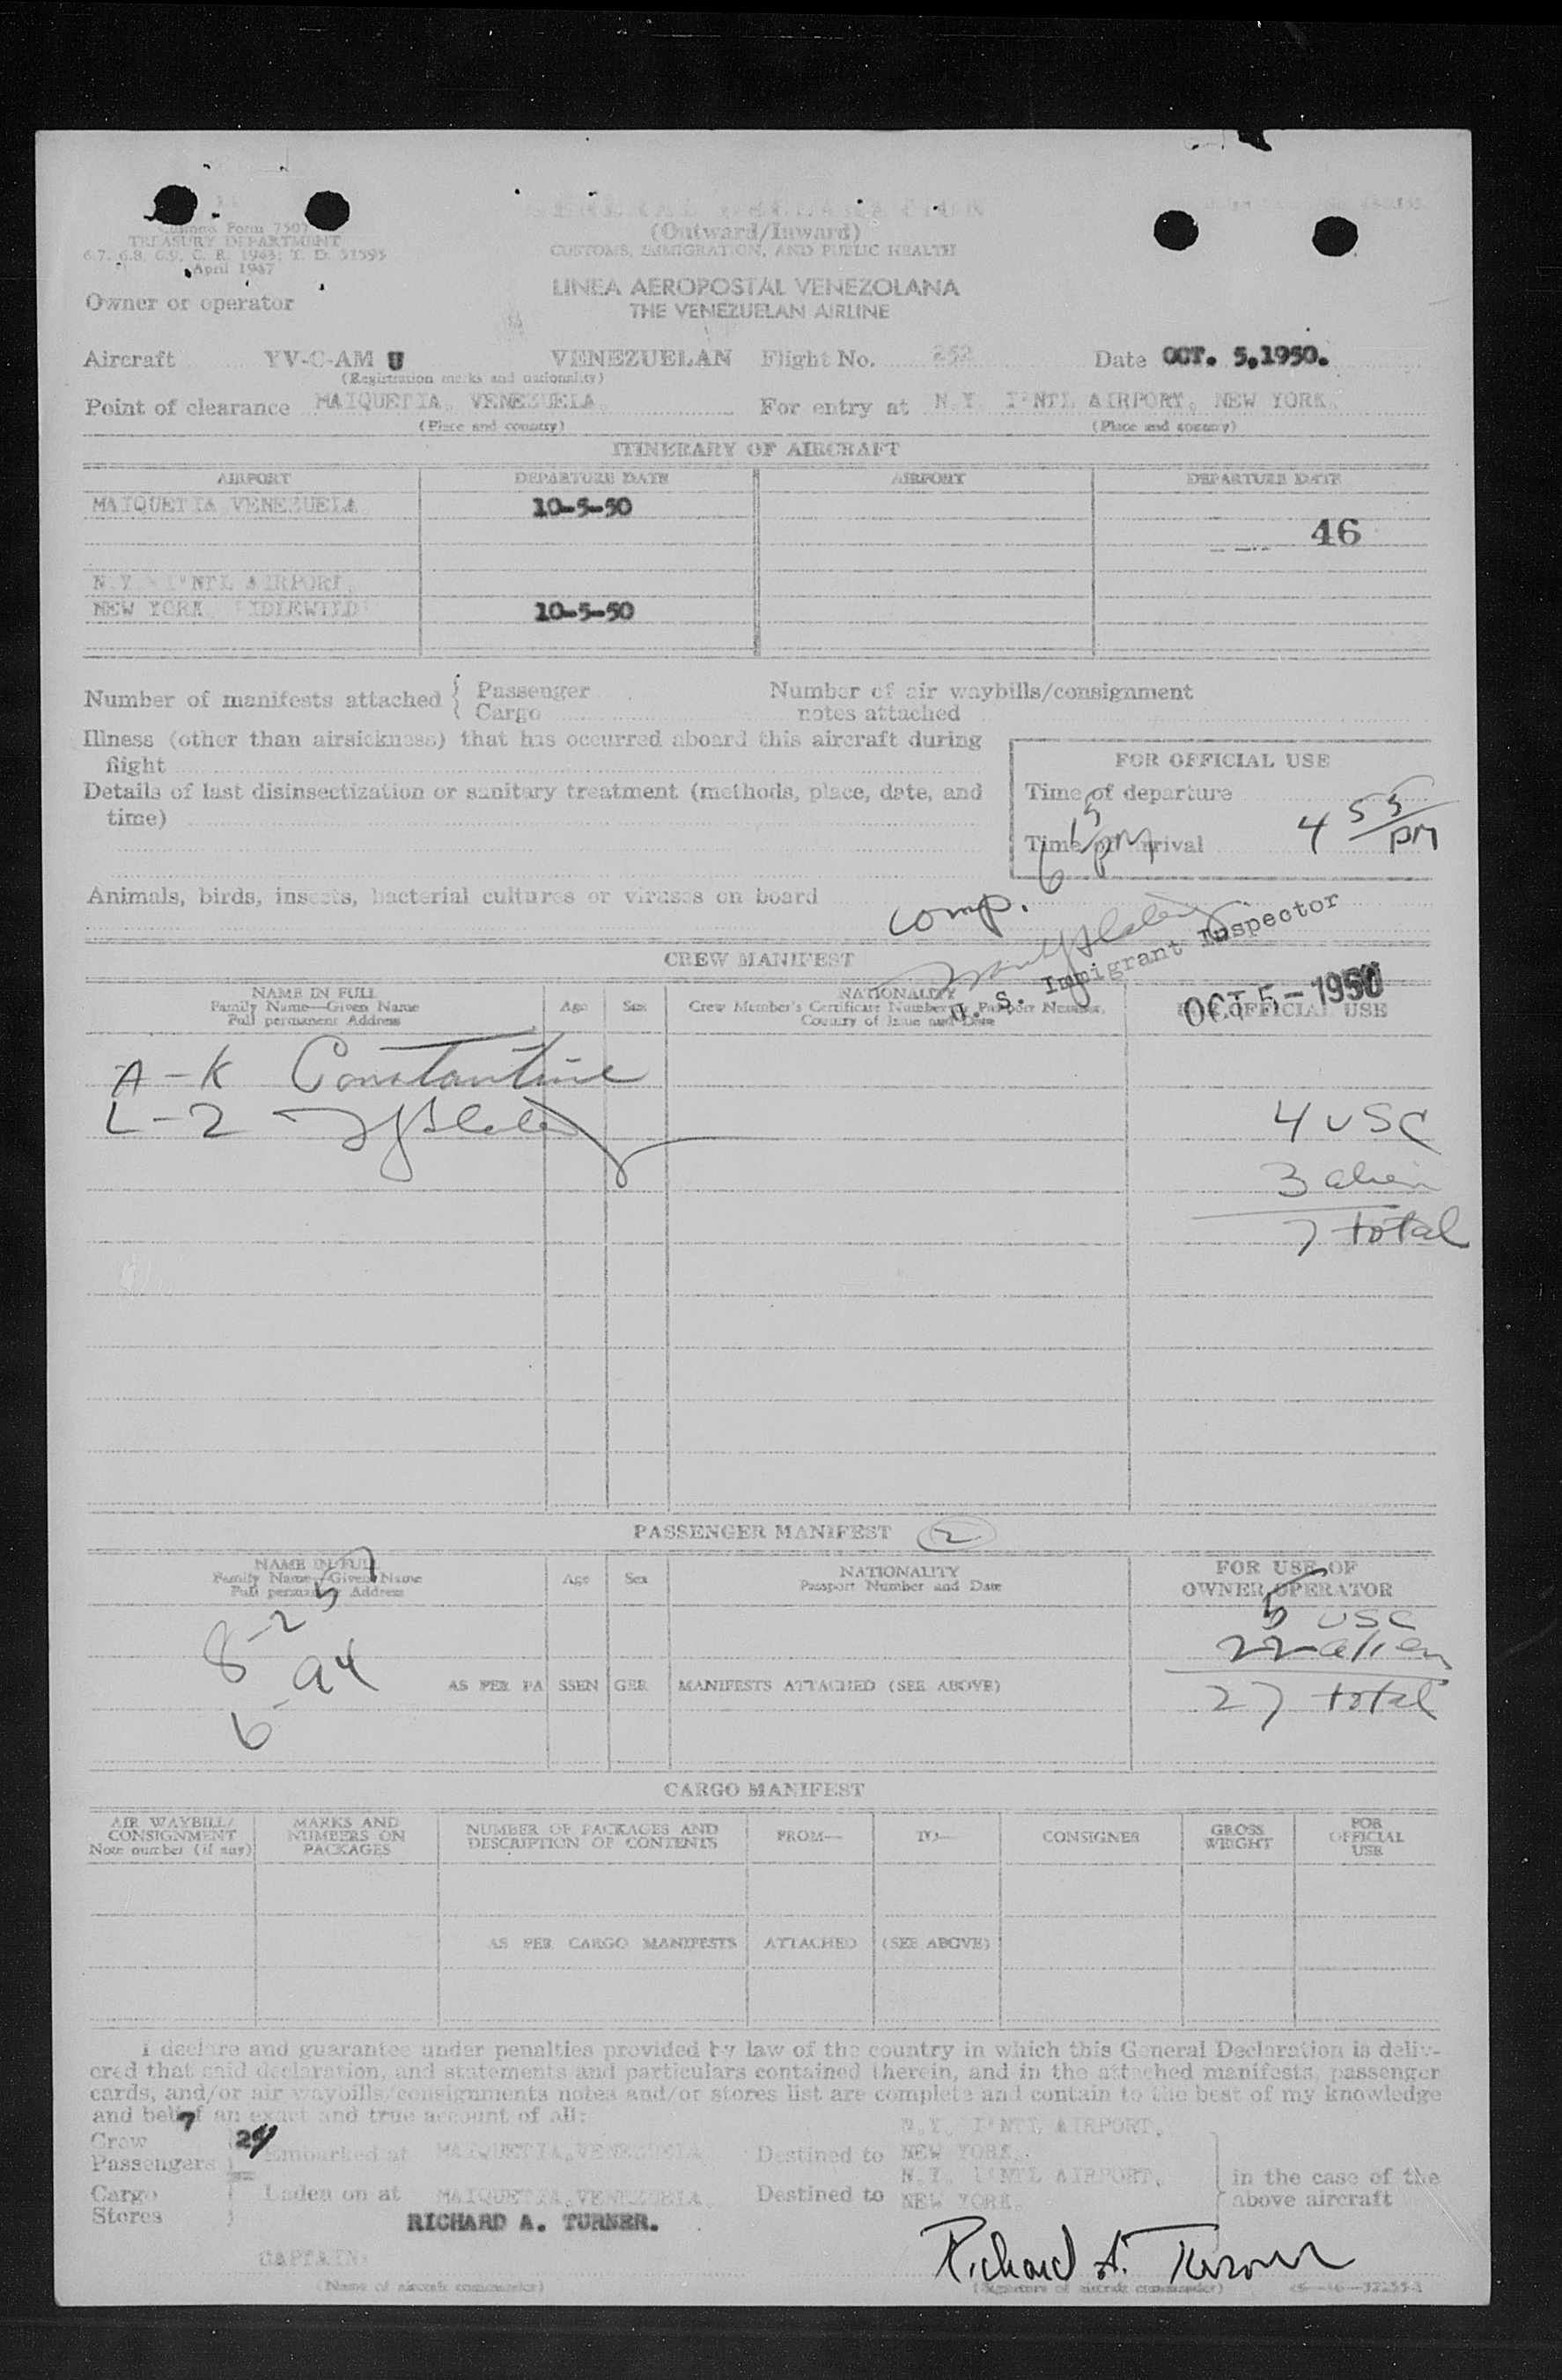 Customs Form 7507
TREASURY DEPARTMENT
6.7, 6.8, 6.9, C. R. 1943; T. D. 51595
April 1947
GENERAL DECLARATION
(Outward/Inward)
CUSTOMS, IMMIGRATION, AND PUBLIC HEALTH
LINEA AEROPOSTAL VENEZOLANA
THE VENEZUELAN AIRLINE
Owner or operator
Aircraft YV-C-AM U VENEZUELAN Flight No. 252 Date OCT. 5,1950.
(Registration marks and nationality)
Point of clearance MAIQUETIA, VENEZUELA. For entry at N.Y. I'NTL AIRPORT, NEW YORK.
(Place and country) (Place and country)
ITINERARY OF AIRCRAFT
AIRPORT DEPARTURE DATE AIRPORT DEPARTURE DATE
MAIQUETIA VENEZUELA 10-5-50
46
N.Y. I'NTL AIRPORT,
NEW YORK IDLEWILD 10-5-50
Number of manifests attached { Passenger
Cargo
Number of air waybills/consignment
notes attached
Illness (other than airsickness) that has occurred aboard this aircraft during
flight
Details of last disinsectization or sanitary treatment (methods, place, date, and
time)
FOR OFFICIAL USE
Time of departure
Time of arrival 4 55 PM
comp. 6 15 pm
Animals, birds, insects, bacterial cultures or viruses on board
U. S. Immigrant Inspector
CREW MANIFEST
OCT 5 - 1950
NAME IN FULL
Family Name—Given Name
Full permanent Address
Age Sex
NATIONALITY
Crew Member's Certificate Number or Passport Number,
Country of Issue and Date
FOR OFFICIAL USE
A - K Constantine
L - Z
4 USC
3 alien
7 total
PASSENGER MANIFEST 2
NAME IN FULL
Family Name—Given Name
Full permanent Address
Age Sex
NATIONALITY
Passport Number and Date
FOR USE OF
OWNER/OPERATOR
5 USC
22 alien
27 total
AS PER PA SSEN GER MANIFESTS ATTACHED (SEE ABOVE)
CARGO MANIFEST
AIR WAYBILL/
CONSIGNMENT
Note number (if any)
MARKS AND
NUMBERS ON
PACKAGES
NUMBER OF PACKAGES AND
DESCRIPTION OF CONTENTS
FROM—
TO—
CONSIGNEE
GROSS
WEIGHT
FOR
OFFICIAL
USE
AS PER CARGO MANIFESTS ATTACHED (SEE ABOVE)
I declare and guarantee under penalties provided by law of the country in which this General Declaration is deliv-
ered that said declaration, and statements and particulars contained therein, and in the attached manifests, passenger
cards, and/or air waybills/consignments notes and/or stores list are complete and contain to the best of my knowledge
and belief an exact and true account of all:
Crew 7
Passengers
Embarked at MAIQUETIA, VENEZUELA
Destined to N.Y. I'NTL AIRPORT,
NEW YORK.
Cargo
Stores
Laden on at MAIQUETIA, VENEZUELA
Destined to N.Y. I'NTL AIRPORT,
NEW YORK.
in the case of the
above aircraft
RICHARD A. TURNER.
CAPTAIN
(Name of aircraft commander)
Richard A. Turner
(Signature of aircraft commander)